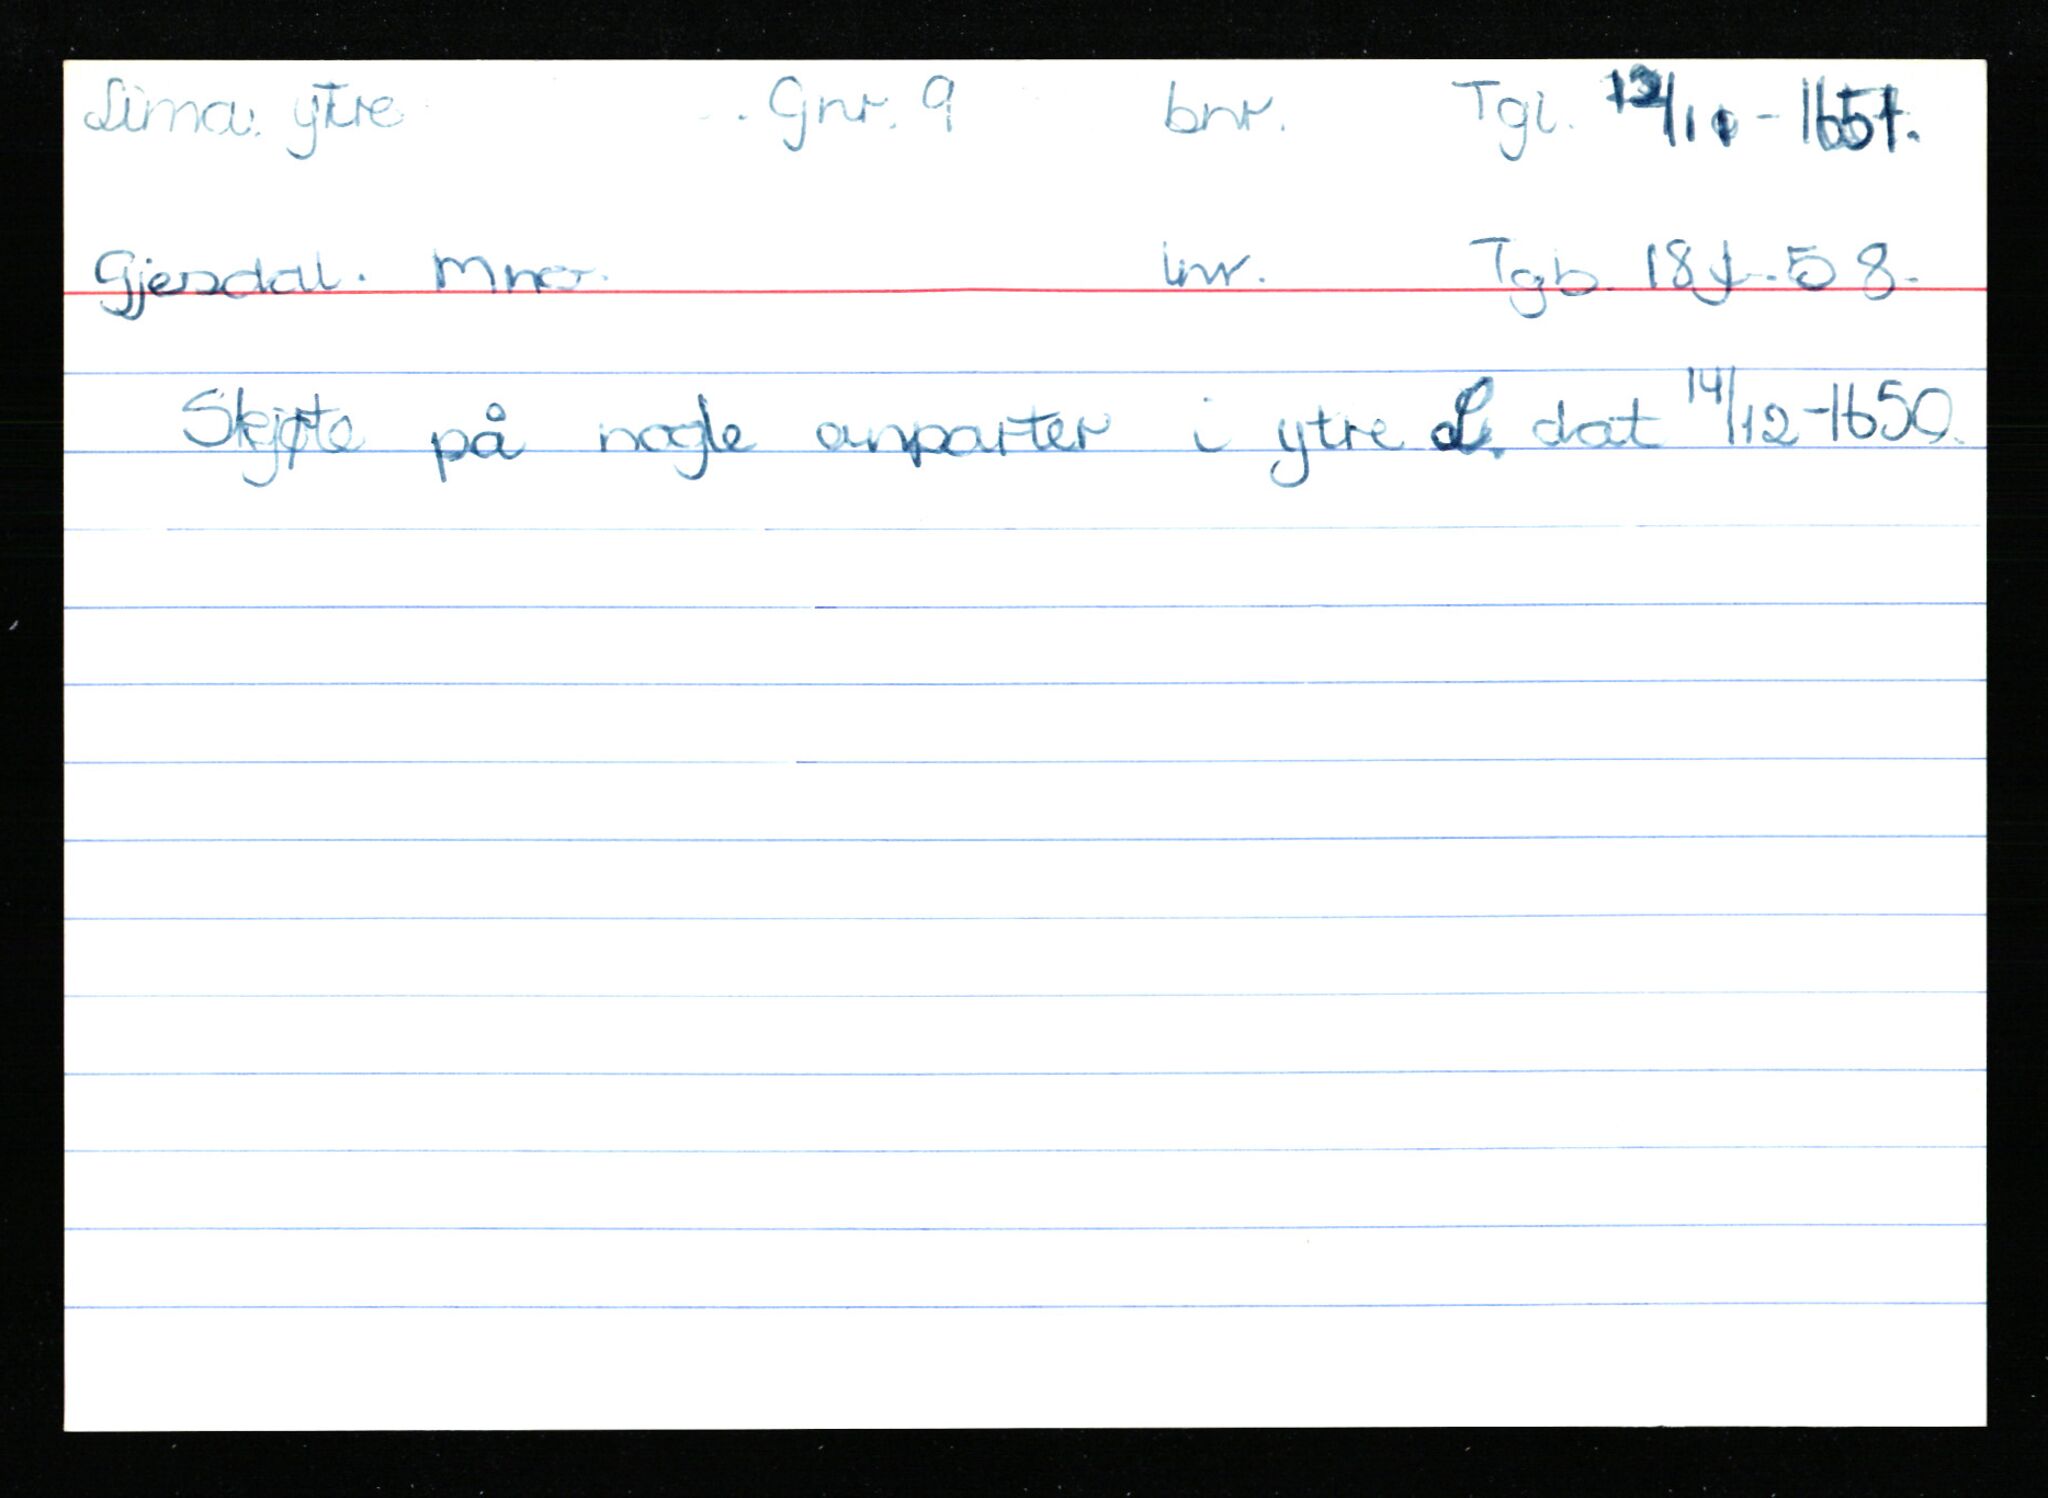 Lima ytre Gnr. 9 bnr. Tgl. 12/11-1651.
Gjesdal. Mnr. lnr. Tgb. 58.
Skjøte på nogle anparter i ytre L. dat 14/12-1650.